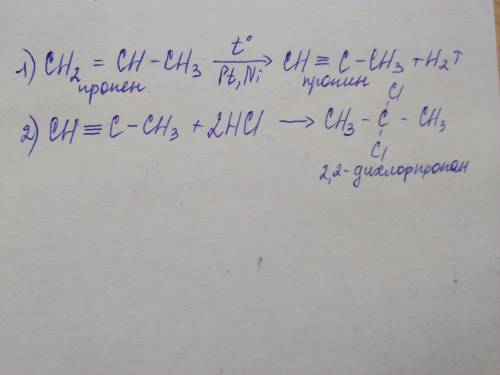 1) CH₂ = CH – CH₃ t° Pt, Ni → CH ≡ C – CH₃ + H₂↑
пропен пропин
2) CH ≡ C – CH₃ + 2HCl → CH₃ – C – CH₃
Cl
Cl
2,2-дихлорпропан